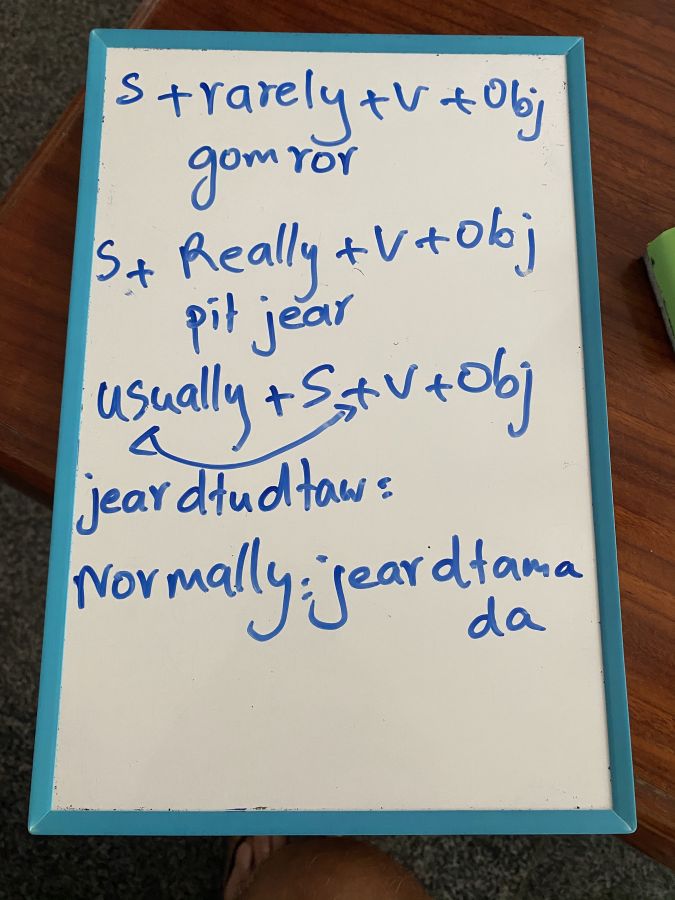 S + rarely + V + Obj
gomror
S + Really + V + Obj
pit jear
usually + S + V + Obj
jear dtudtaw :
Normally : jear dtama
da